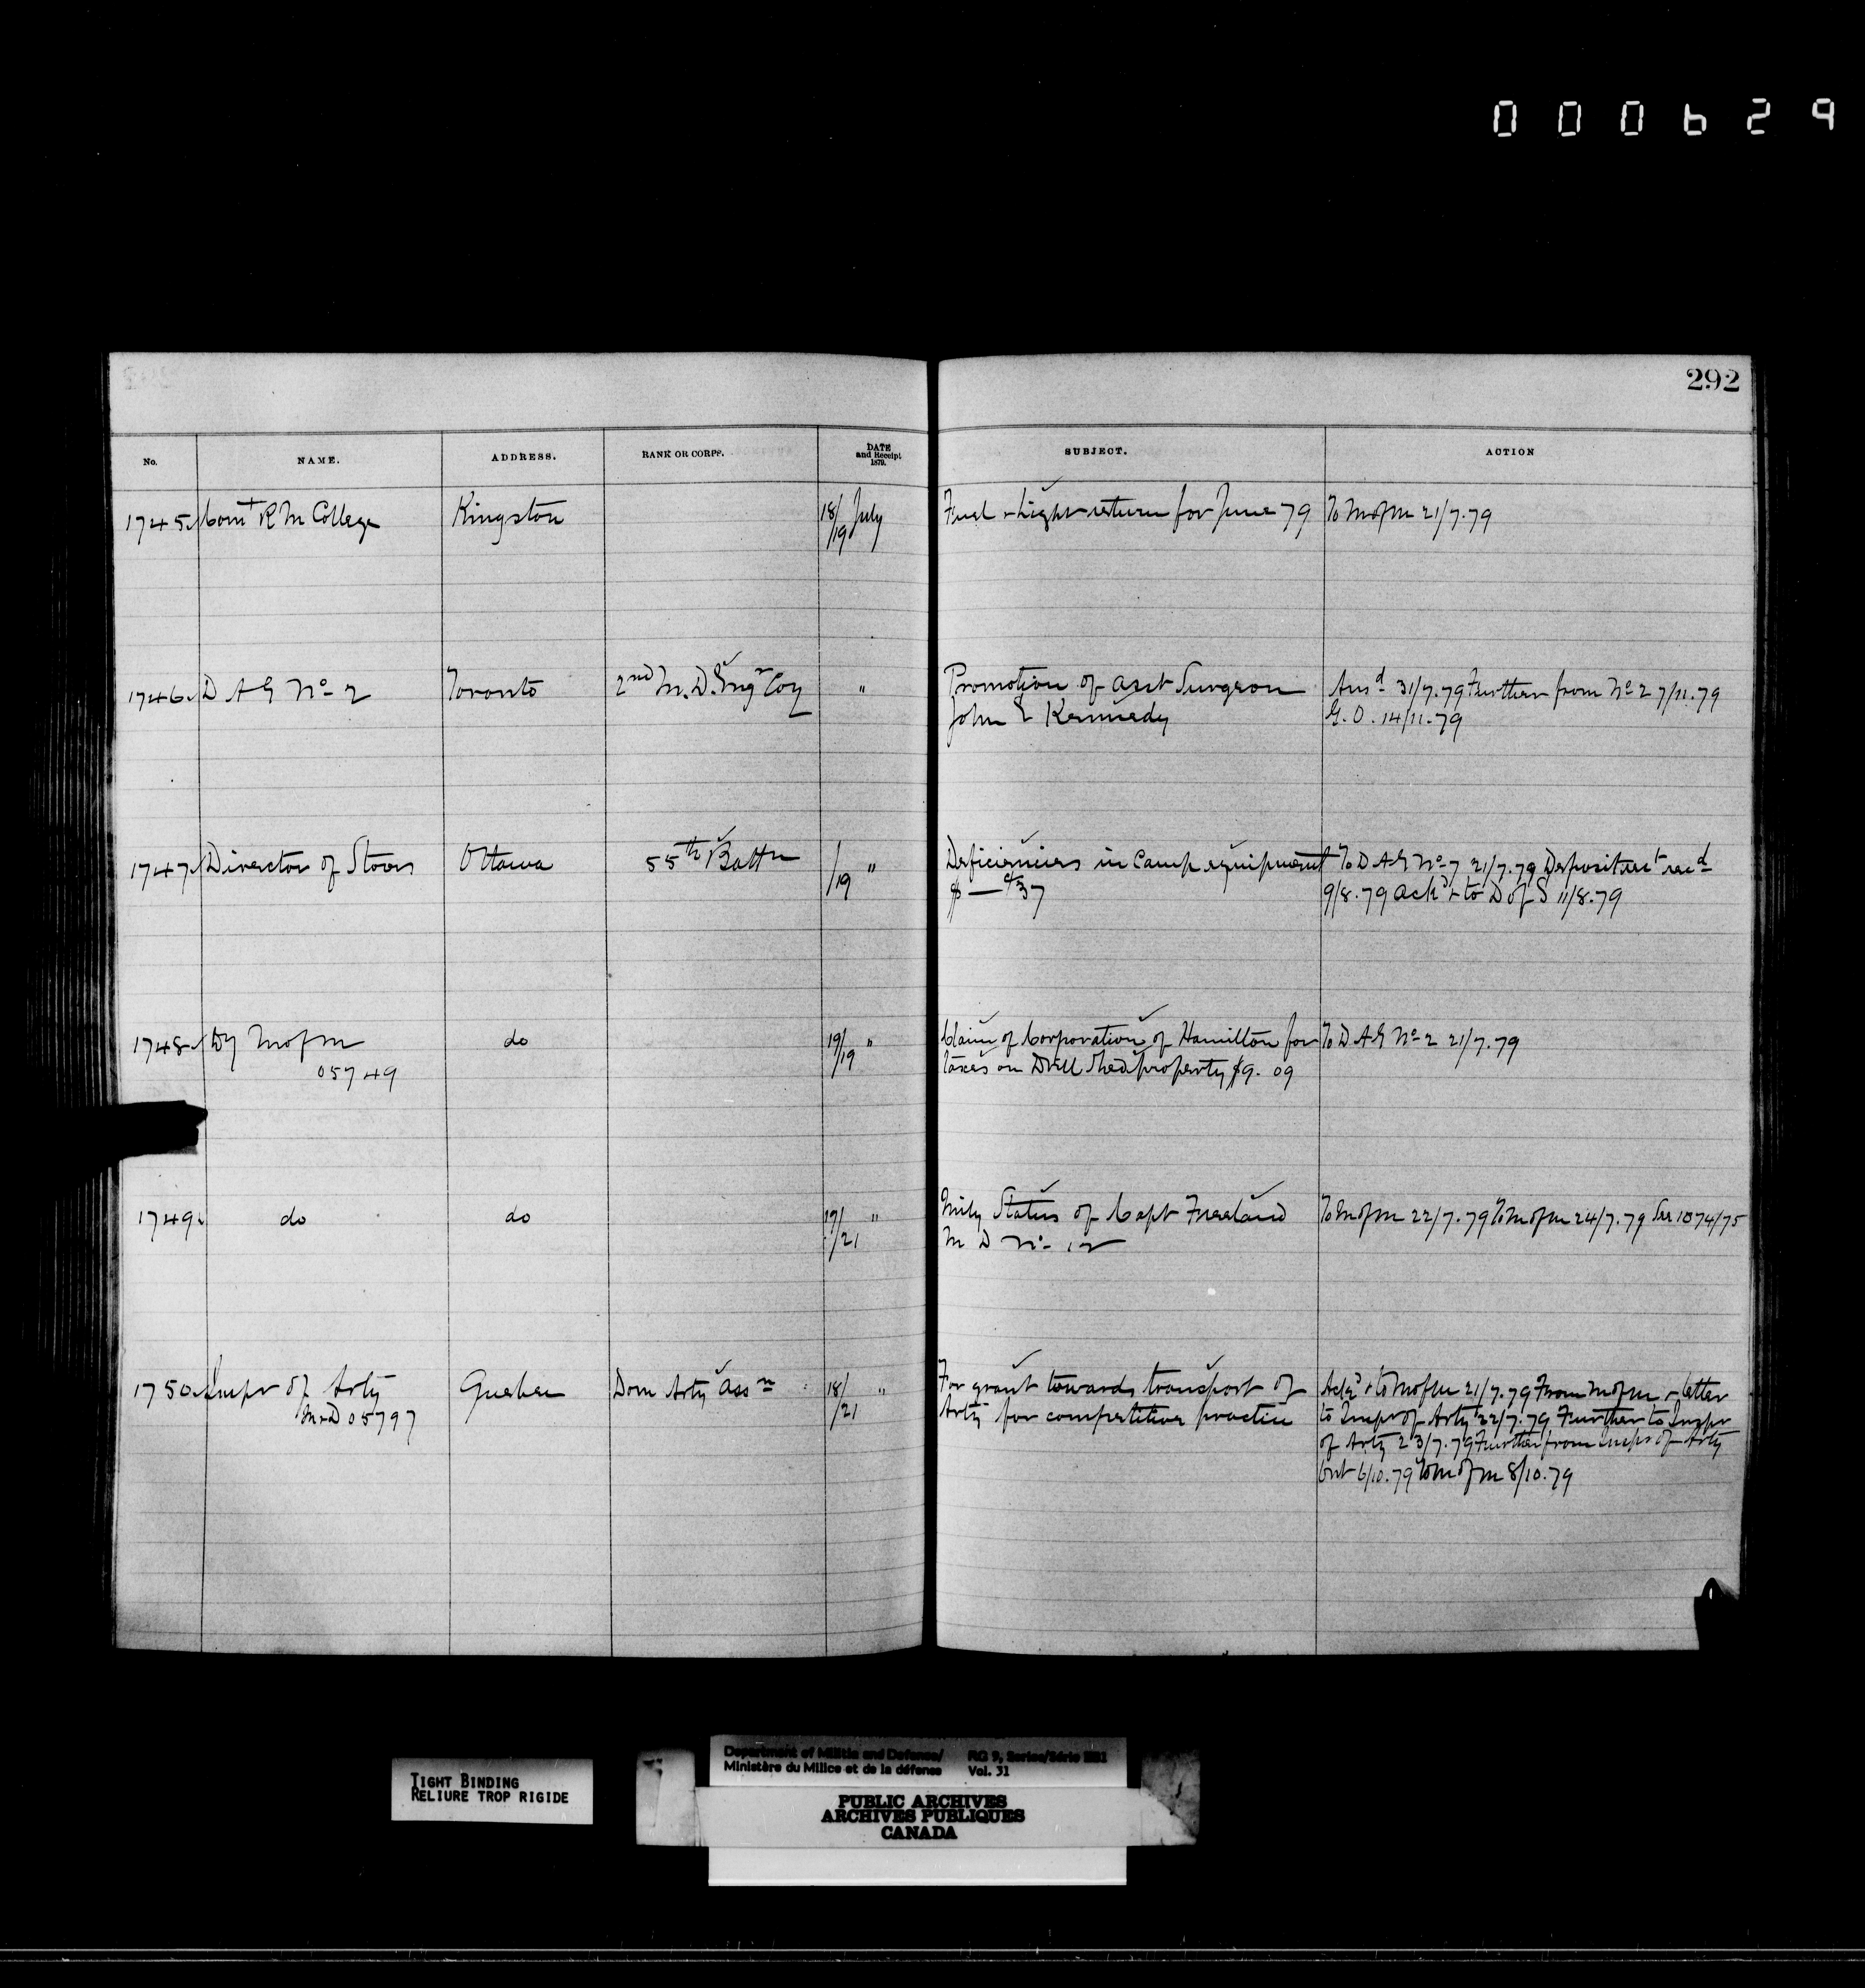 000629
292
No. NAME. ADDRESS. RANK OR CORPS. DATE and Receipt 1879. SUBJECT. ACTION
1745 Comt R M College Kingston 18/19 July Fuel & Light return for June 79 To M of M 21/7.79
1746 D A G No 2 Toronto 2nd M. D. Engr Coy " Promotion of asst Surgeon Ansd 31/7.79 Further from No 2 7/11.79
John E Kennedy G. O. 14/11.79
1747 Director of Stores Ottawa 55th Battn /19 " Deficiencies in Camp equipment To D A G No 7 21/7.79 Deposit rect recd
$ — 37 9/8.79 ackd & to D of S 11/8.79
1748 Dy M of M do 19/19 " Claim of Corporation of Hamilton for To D A G No 2 21/7.79
05749 taxes on Drill Shed property $9.09
1749 do do 19/21 " Mily Status of Capt Freeland To M of M 22/7.79 To M of M 24/7.79 See 1074/75
M D No 12
1750 Inspr of Arty Quebec Dom Arty Assn 18/21 " For grant towards transport of Ackd & to M of M 21/7.79 From M of M & letter
M & D 05797 Arty for competitive practice to Inspr of Arty 22/7.79 Further to Inspr
of Arty 23/7.79 Further from Inspr of Arty
Ont 6/10.79 To M of M 8/10.79
TIGHT BINDING
RELIURE TROP RIGIDE
Department of Militia and Defence/ RG 9, Series/Série IIB1
Ministère du Milice et de la défense Vol. 31
PUBLIC ARCHIVES
ARCHIVES PUBLIQUES
CANADA